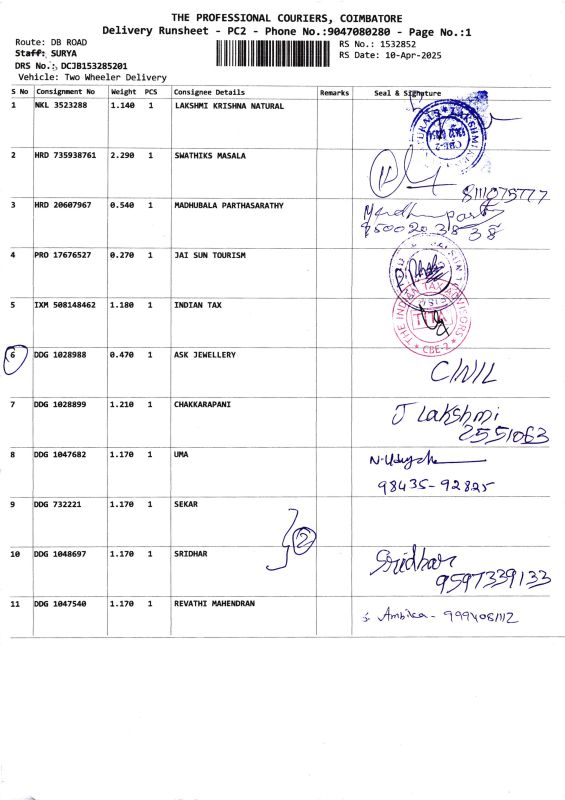 THE PROFESSIONAL COURIERS, COIMBATORE
Delivery Runsheet - PC2 - Phone No.:9047080280 - Page No.:1
Route: DB ROAD
RS No.: 1532852
Staff: SURYA
RS Date: 10-Apr-2025
DRS No.: DCJB153285201
Vehicle: Two Wheeler Delivery
S No Consignment No Weight PCS Consignee Details Remarks Seal & Signature
1 NKL 3523288 1.140 1 LAKSHMI KRISHNA NATURAL
CBE-2
2 HRD 735938761 2.290 1 SWATHIKS MASALA
8111075777
3 HRD 20607967 0.540 1 MADHUBALA PARTHASARATHY
4 PRO 17676527 0.270 1 JAI SUN TOURISM
5 IXM 508148462 1.180 1 INDIAN TAX
THE INDIAN TAX ADVISORS
CBE-2
6 DDG 1028988 0.470 1 ASK JEWELLERY
7 DDG 1028899 1.210 1 CHAKKARAPANI
J Lakshmi
2551063
8 DDG 1047682 1.170 1 UMA
98435-92825
9 DDG 732221 1.170 1 SEKAR
2
10 DDG 1048697 1.170 1 SRIDHAR
Sridhar
9597339133
11 DDG 1047540 1.170 1 REVATHI MAHENDRAN
Ambika -